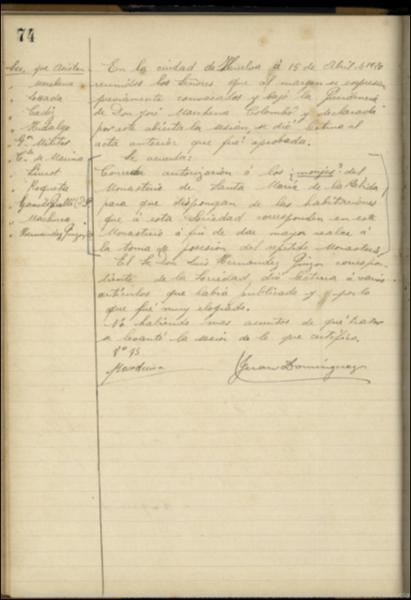 74
Sres. que Asisten
" Marchena
" Losada
" Cádiz
" Hidalgo
" Gr. Militar
" Cte. de Marina
"
" Roqueta
" García
" Marchena
" Hernandez Pinzon
En la ciudad de Huelva á 15 de Abril de 19
reunidos los señores que al margen se expresan
previamente convocados y bajo la Presidencia
de Don José Marchena Colombo y declarada
por este abierta la sesión, se dió lectura al
acta anterior que fué aprobada.
Se acuerda:
Conceder autorización á los monjes del
Monasterio de Santa María de la Rábida
para que dispongan de las habitaciones
que á esta Sociedad corresponden en este
Monasterio á fin de dar mayor realce á
la toma de posesión del repetido Monasterio.
El Sr. Don Luis Hernandez Pinzon correspon-
diente de la Sociedad dió lectura á varios
artículos que había publicado y por lo
que fué muy elogiado.
No habiendo mas asuntos de que tratar
se levantó la sesión de lo que certifico.
Vº Bº
Marchena
Juan Dominguez